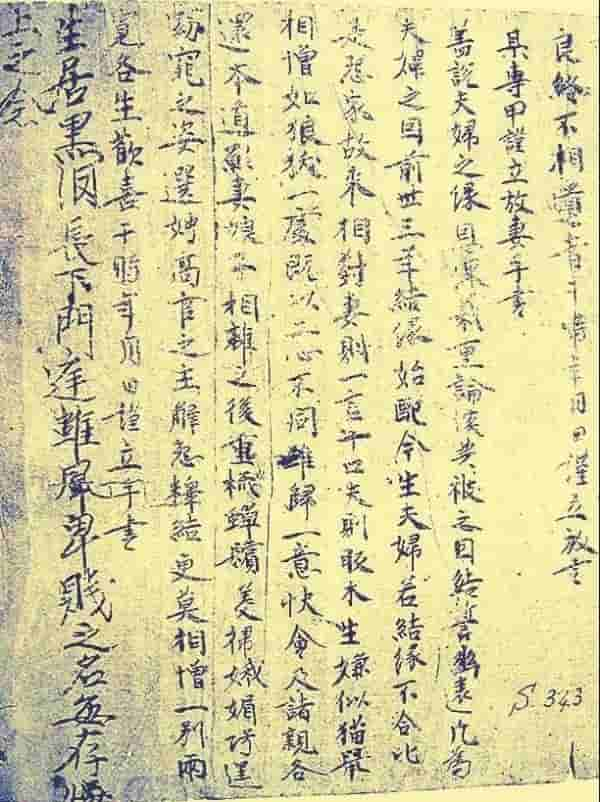 良緣不相遺者于時年月日謹立放書
某專甲謹立放妻手書
盖說夫婦之緣恩深義重論談共被之因結誓幽遠凡為
夫婦之因前世三年結緣始配今生夫婦若結緣不合比
是怨家故來相對妻則一言十口夫則販木生嫌似猫鼠
相憎如狼㹳一處既以二心不同難歸一意快會及諸親各
還本道願妻娘子相離之後重梳蟬鬢美掃娥媚巧逞
窈窕之姿選娉高官之主解怨釋結更莫相憎一別兩
寬各生歡喜于時年月日謹立手書
生居黑泪長下門庭雖居卑賤之名無存
上之念
S. 343